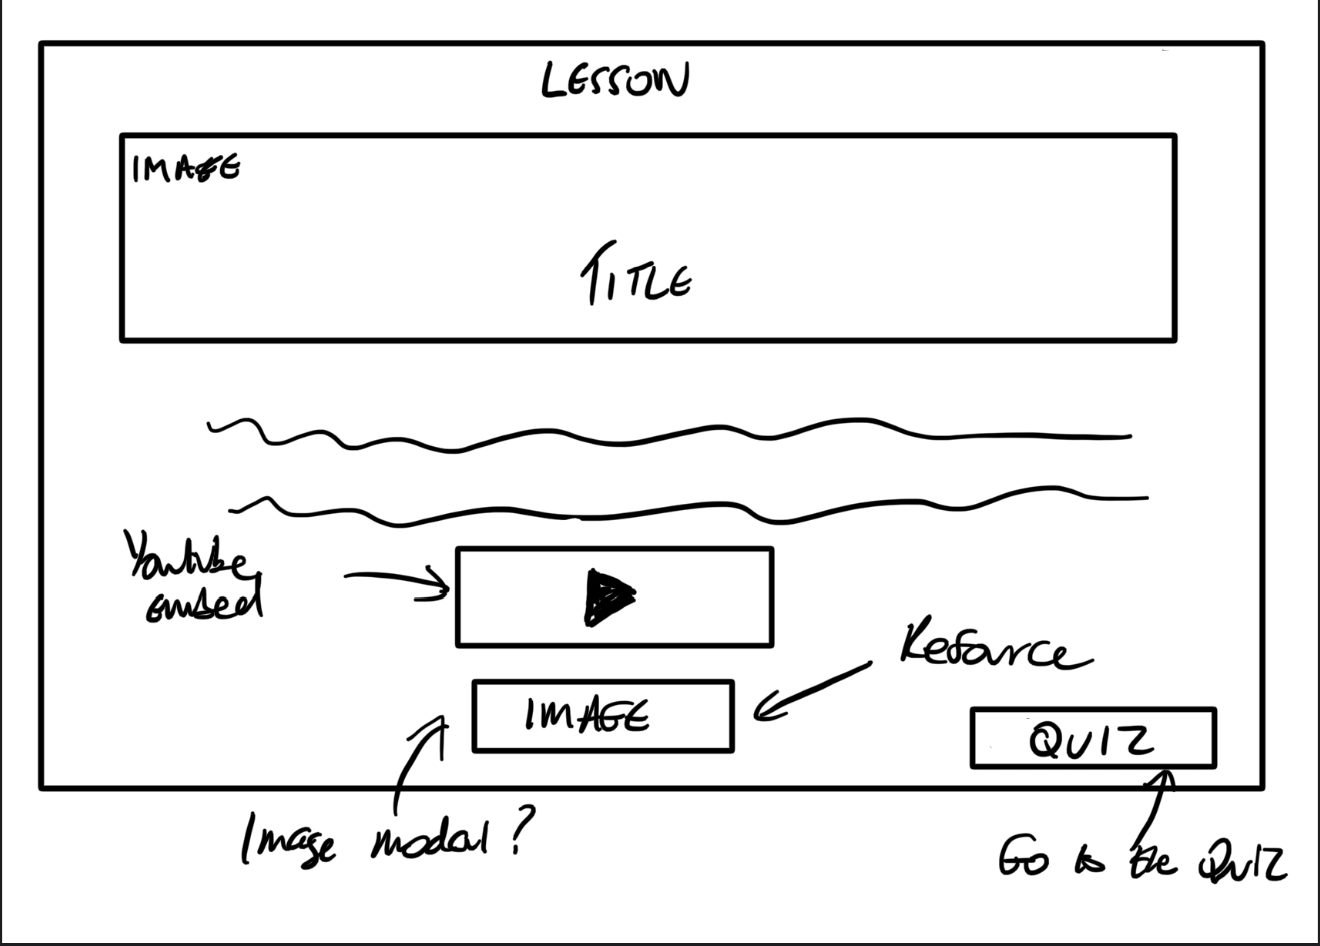 LESSON
IMAGE
TITLE
Youtube
embed
Resource
IMAGE
QUIZ
Image modal?
Go to the QUIZ